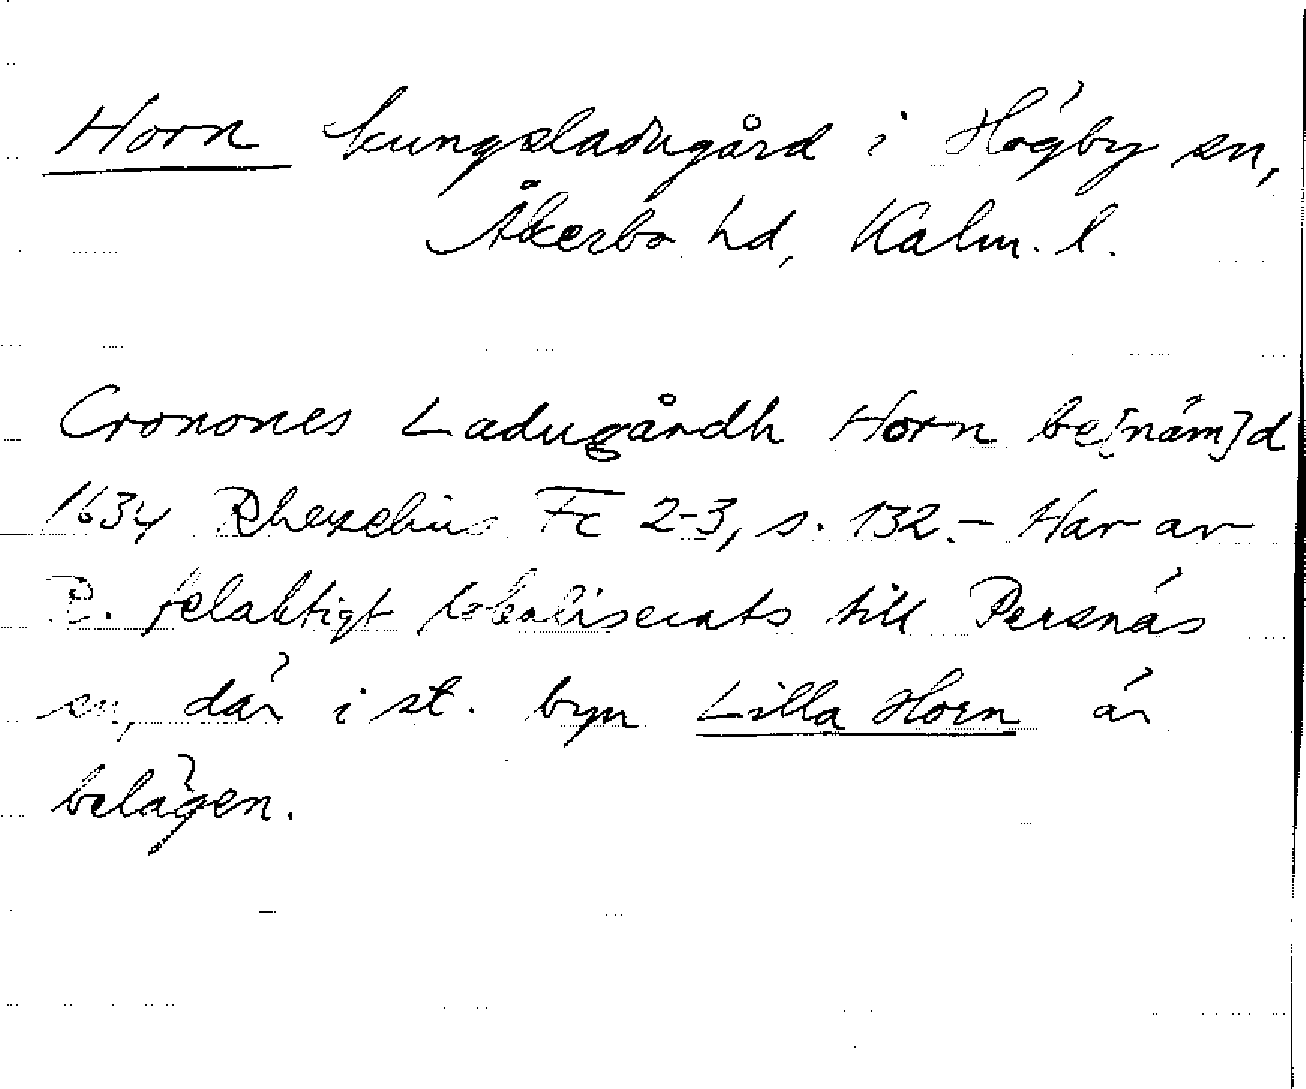 Horn kungsladugård i Högby sn,
Åkerbo hd, Kalm. l.
Cronones Ladugårdh Horn be[näm]d
1634 Rhezelius Fc 2-3, s. 132.- Har av
R. felaktigt lokaliserats till Persnäs
sn, där i st. byn Lilla Horn är
belägen.